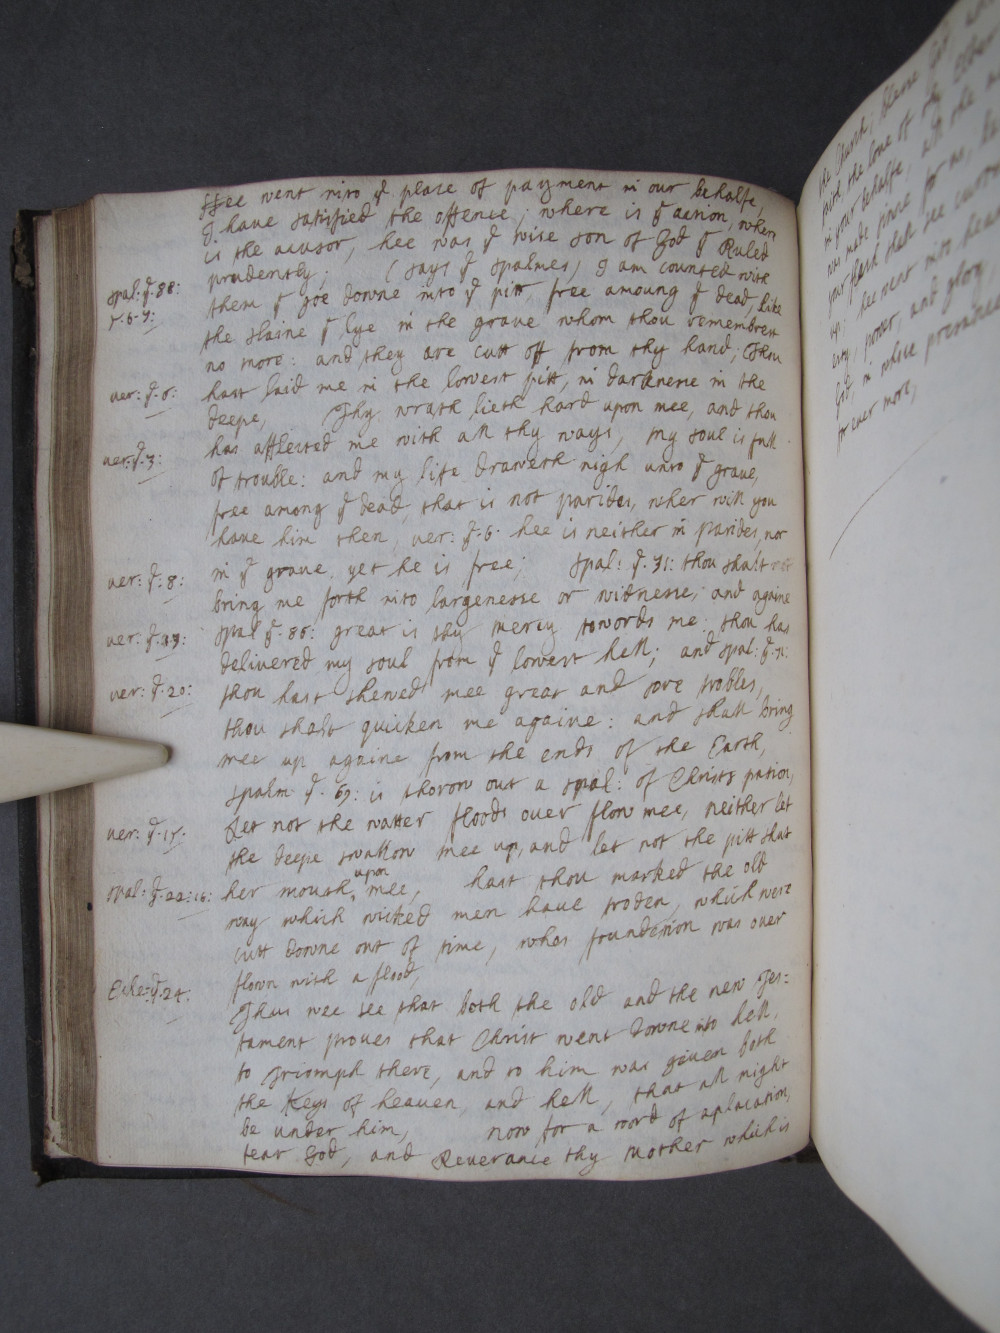 ffee went into ye. place of payment in our behalfe,
I have satisfied the offence; where is ye action, wher
is the acusor, hee was ye wise son of God yt Ruled
prudently; (says ye spalmes) I am counted with
spal: ye. 88:
v. 6. 7:
them yt goe downe into ye pitt, free amoung ye dead, like
the slaine yt lye in the grave whom thou remembrest
no more: and they are cutt off from thy hand; Thou
ver: ye. 6:
hast laid me in the lowest pitt, in darkness in the
deepe, Thy wrath lieth hard upon mee, and thou
ver: ye. 3:
has afflicted me with all thy ways, my soul is full
of trouble: and my life draweth nigh unto ye grave,
free among ye dead, that is not parides, wher will you
have him then, ver: ye. 6. hee is neither in parides, nor
ver: ye. 8:
in ye grave, yet he is free; spal: ye. 31: thou shalt not
bring me forth into largenesse or widnesse; and againe
ver: ye. 19:
spal ye. 86: great is thy mercy towords me: thou has
delivered my soul from ye lowest hell; and spal: ye. 71:
ver: ye. 20:
thou hast shewed mee great and sore trobles,
thou shalt quicken me againe: and shall bring
mee up againe from the ends of the Earth,
spalm ye. 69: is thorow out a spal: of Christs pation,
ver: ye. 15.
Let not the watter floods over flow mee, neither let
the deepe swallow mee up, and let not the pitt shut
spal: ye. 22: 16:
her mouth ^upon mee, hast thou marked the old
way which wicked men have troden, which were
cutt downe out of time, whos foundetion was over
flown with a flood,
ye. 24.
Thus wee see that both the old and the new Tes:
tament proves that Christ went downe into hell,
to Triomph there, and to him was given both
the Keys of heaven, and hell, that all might
be under him, now for a word of aplacation,
fear God, and Reverance thy Mother which is
the Church; Blesse God,
faith, the love of the
in your behalfe,
was made
your flesh shall see
up; hee went into
power, and glory
God, in whose
for ever more,